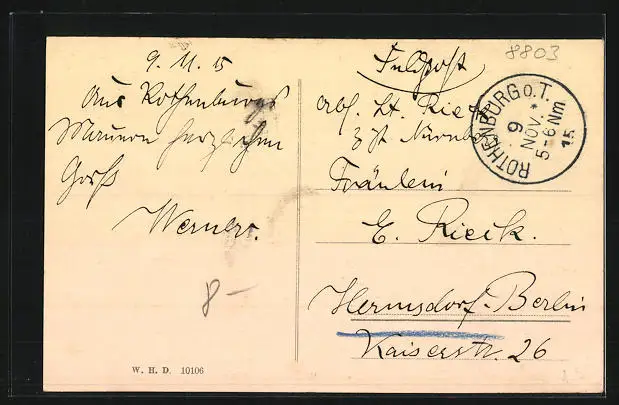 8803
9. 11. 15
Aus Rothenburgs
Mauern herzlichen
Gruß
Werner.
8 –
W. H. D. 10106
Feldpost
abs. Lt. Rieck
z. Zt. Nürnberg
ROTHENBURG o. T.
9
NOV. *
5-6 Nm
15
Fräulein
E. Rieck.
Hermsdorf-Berlin
Kaiserstr. 26